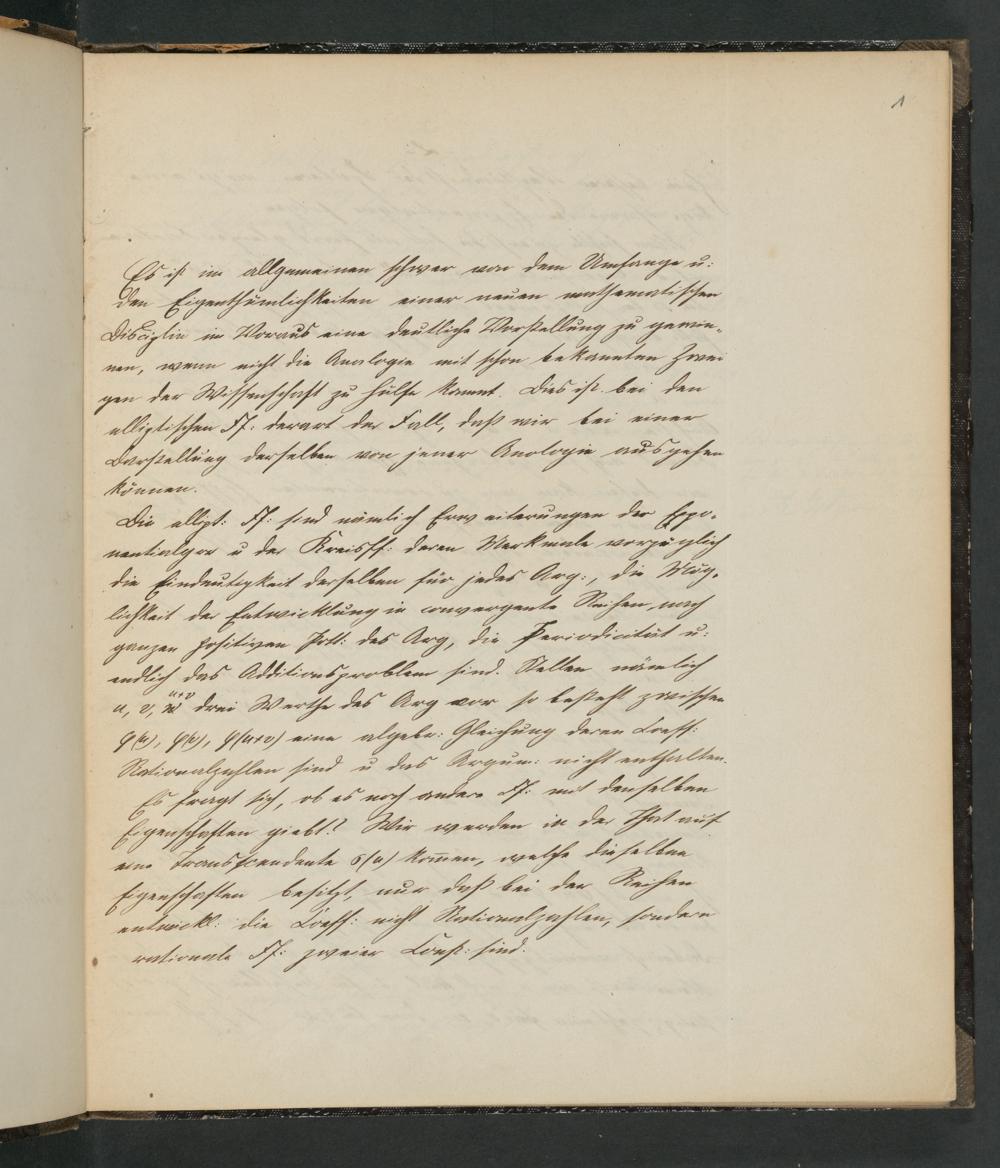 1
Es ist im allgemeinen schwer von dem Umfange u:
den Eigenthümlichkeiten einer neuen mathematischen
Disciplin im Voraus eine deutliche Vorstellung zu gewin-
nen, wenn nicht die Analogie mit schon bekannten Zwei
gen der Wissenschaft zu Hülfe kommt. Dies ist bei den
elliptischen Ff: derart der Fall, daß wir bei einer
Darstellung derselben von jener Analogie ausgehen
können.
Die ellipt: Ff: sind nämlich Erweiterungen der Expo-
nentialgrx u der Kreisff: deren Merkmale vorzüglich
die Eindeutigkeit derselben für jedes Arg:, die Mög-
lichkeit der Entwicklung in convergente Reihen nach
ganzen positiven Pott: des Arg, die Periodicität u:
endlich das Additionsproblem sind. Stellen nämlich
u, v, u+v drei Werthe des Arg vor so besteht zwischen
φ(u), φ(v), φ(u+v) eine algebr: Gleichung deren Coeff:
Rationalzahlen sind u das Argum: nicht enthalten.
Es fragt sich, ob es noch andere Ff: mit denselben
Eigenschaften giebt? Wir werden in der That auf
eine Transscendente σ(u) kom̄en, welche dieselben
Eigenschaften besitzt, nur daß bei den Reihen
entwickl: die Coeff: nicht Rationalzahlen, sondern
rationale Ff: zweier Const: sind.